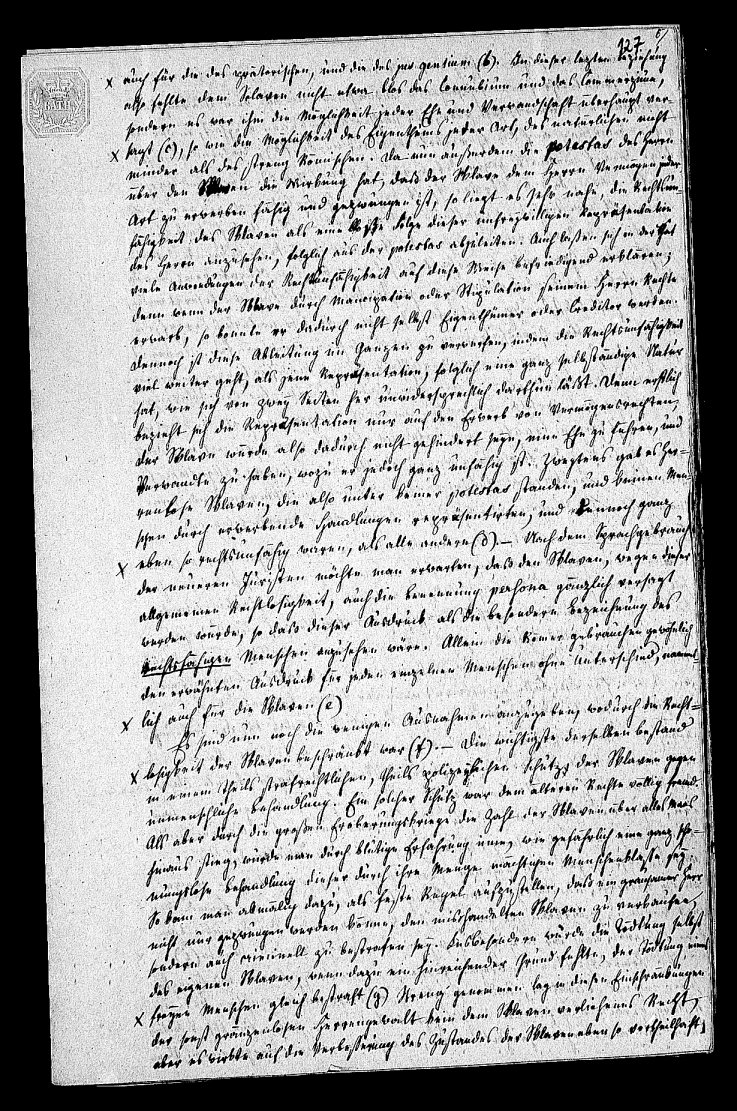 127.
auch für die des prätorischen, und die des jus gentium (b). In dieser letzten Beziehung
also fehlte dem Sclaven nicht etwa blos das Connubium und das Commercium,
sondern es war ihm die Möglichkeit jeder Ehe und Verwandschaft überhaupt ver-
sagt (c), so wie die Möglichkeit des Eigenthums jeder Art, des natürlichen nicht
minder als des streng Römischen. Da nun außerdem die potestas des Herrn
über den Sklaven die Wirkung hat, daß der Sklave dem Herrn Vermögen jeder
Art zu erwerben fähig und gezwungen ist, so liegt es sehr nahe, die Rechtsun-
fähigkeit des Sklaven als eine bloße Folge dieser unfreywilligen Repräsentation
des Herrn anzusehen, folglich aus der potestas abzuleiten. Auch lassen sich in der That
viele Anwendungen der Rechtsunfähigkeit auf diese Weise befriedigend erklären;
denn wenn der Sklave durch Mancipation oder Stipulation seinem Herrn Rechte
erwarb, so konnte er dadurch nicht selbst Eigenthümer oder Creditor werden.
Dennoch ist diese Ableitung im Ganzen zu verwerfen, indem die Rechtsunfähigkeit
viel weiter geht, als jene Repräsentation, folglich eine ganz selbständige Natur
hat, wie sich von zwey Seiten her unwidersprechlich darthun läßt. Denn erstlich
bezieht sich die Repräsentation nur auf den Erwerb von Vermögensrechten,
der Sklave würde also dadurch nicht gehindert seyn, eine Ehe zu führen, und
Verwandte zu haben, wozu er jedoch ganz unfähig ist. Zweytens gab es her-
renlose Sklaven, die also unter keiner potestas standen, und keinen Men-
schen durch erwerbende Handlungen repräsentirten, und dennoch ganz
eben so rechtsunfähig waren, als alle andere (d). – Nach dem Sprachgebrauch
der neueren Juristen möchte man erwarten, daß den Sklaven, wegen dieser
allgemeinen Rechtlosigkeit, auch die Benennung persona gänzlich versagt
werden würde, so daß dieser Ausdruck als die besondere Bezeichnung des
rechtsfähigen Menschen anzusehen wäre. Allein die Römer gebrauchen gewöhnlich
den erwähnten Ausdruck für jeden einzelnen Menschen ohne Unterschied, nament-
lich auch für die Sklaven (e)
Es sind nun noch die wenigen Ausnahmen anzugeben, wodurch die Recht-
losigkeit der Sklaven beschränkt war (f). – Die wichtigste derselben bestand
in einem theils strafrechtlichen, theils polizeylichen Schutz der Sklaven gegen
unmenschliche Behandlung. Ein solcher Schutz war dem älteren Rechte völlig fremd.
Als aber durch die großen Eroberungskriege die Zahl der Sklaven über alles Maas
hinaus stieg, wurde man durch blutige Erfahrung inne, wie gefährlich eine ganz scho-
nungslose Behandlung dieser durch ihre Menge mächtigen Menschenklasse sey.
So kam man allmälig dazu, als feste Regel aufzustellen, daß ein grausamer Herr
nicht nur gezwungen werden könne, den mishandelten Sklaven zu verkaufen,
sondern auch criminell zu bestrafen sey. Insbesondere wurde die Tödtung selbst
des eigenen Sklaven, wenn dazu ein hinreichender Grund fehlte, der Tödtung eines
freyen Menschen gleich bestraft (g) Streng genommen lag in diesen Einschränkungen
der sonst gränzenlosen Herrengewalt kein dem Sklaven verliehenes Recht,
aber es wirkte auf die Verbesserung des Zustandes der Sklaven eben so vortheilhaft,